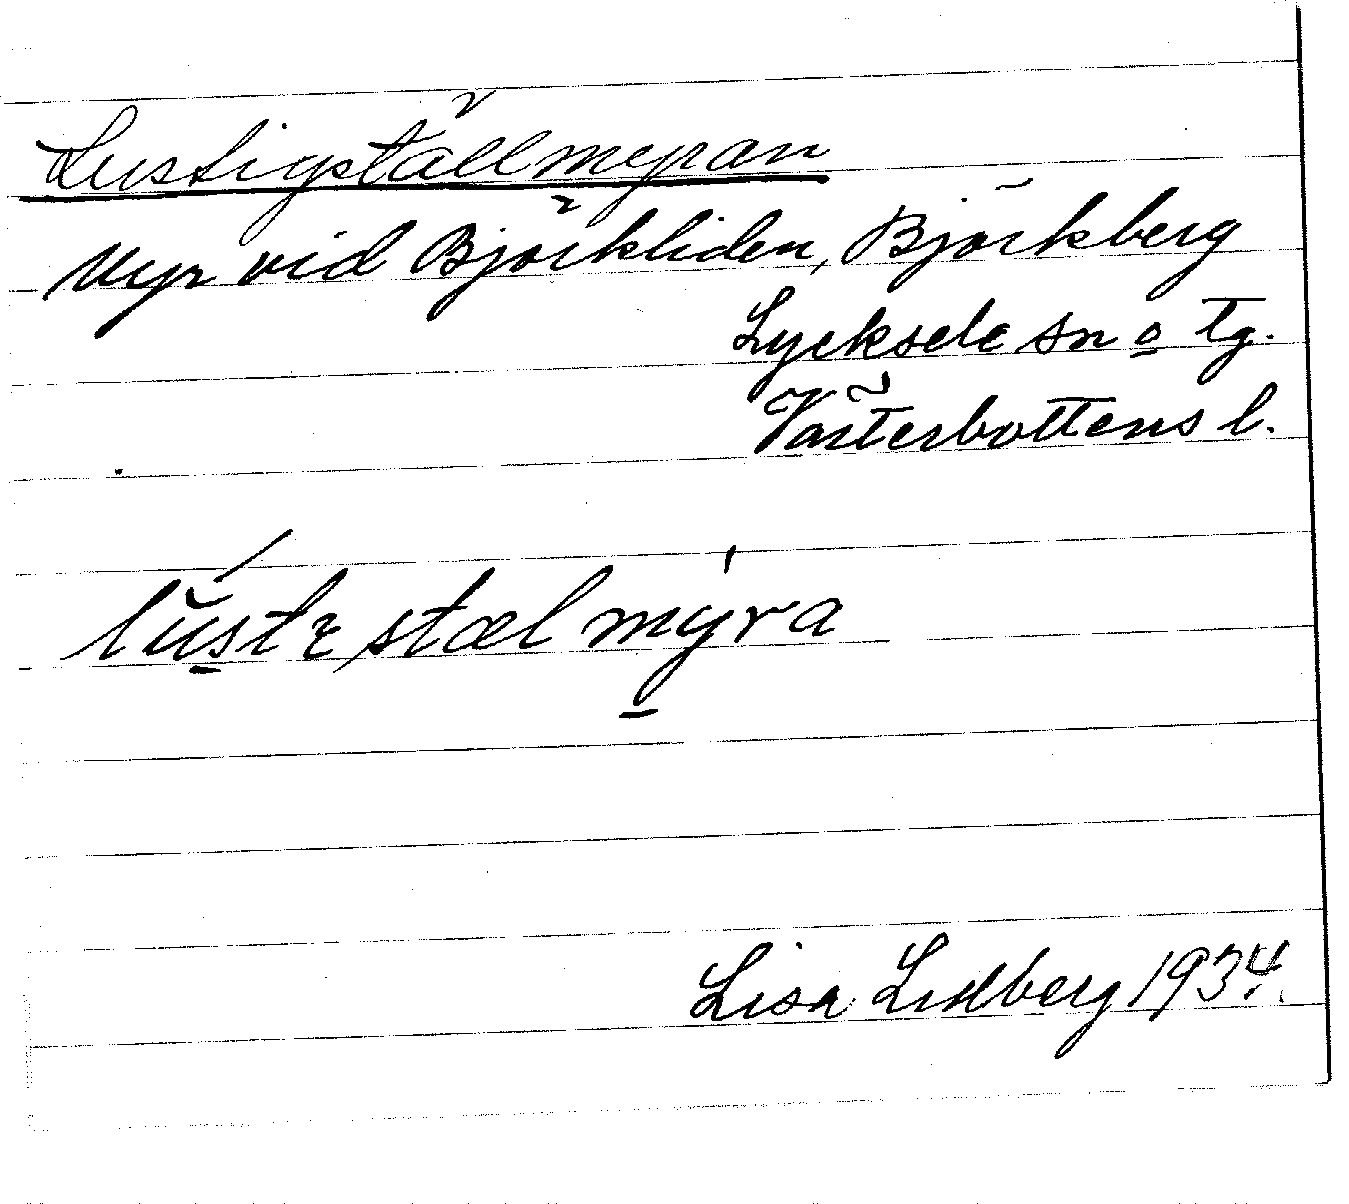 Lustigställmyran
Myr vid Björkliden, Björkberg
Lycksele sn o tg.
Västerbottens l.
Lisa Lidberg 1934.